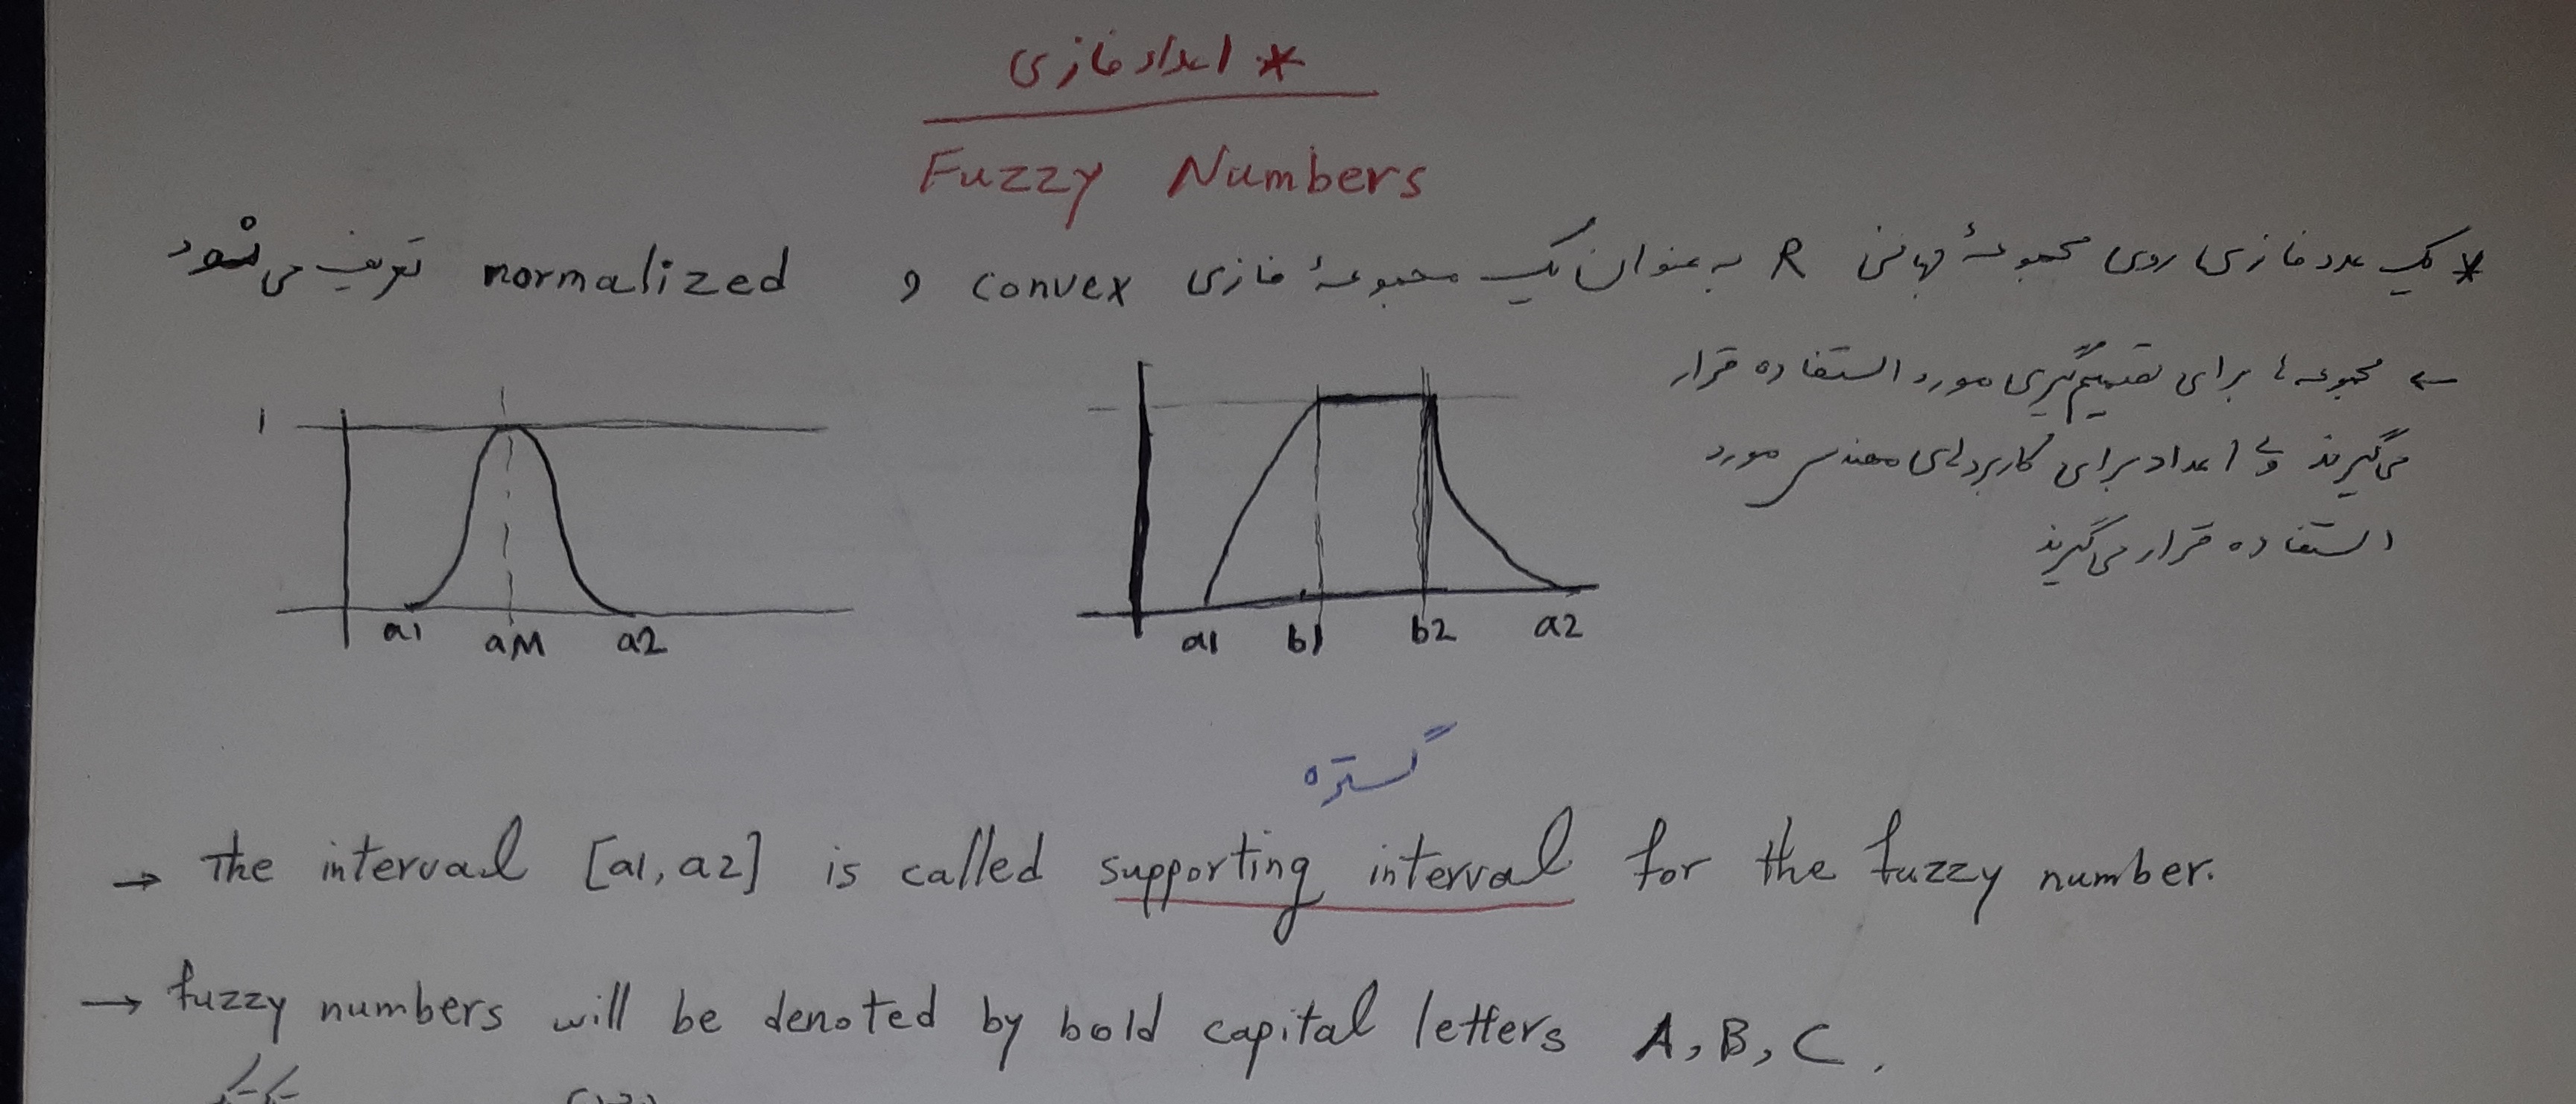 * اعداد فازی
Fuzzy Numbers
* یک عدد فازی روی مجموعهٔ جهانی R به عنوان یک مجموعهٔ فازی convex و normalized تعریف می‌شود
← مجموعه‌ها برای تصمیم‌گیری مورد استفاده قرار
می‌گیرند ولی اعداد برای کاربردهای مهندسی مورد
استفاده قرار می‌گیرند
1
a1 aM a2
a1 b1 b2 a2
گستره
→ The interval [a1, a2] is called supporting interval for the fuzzy number.
→ fuzzy numbers will be denoted by bold capital letters A, B, C.